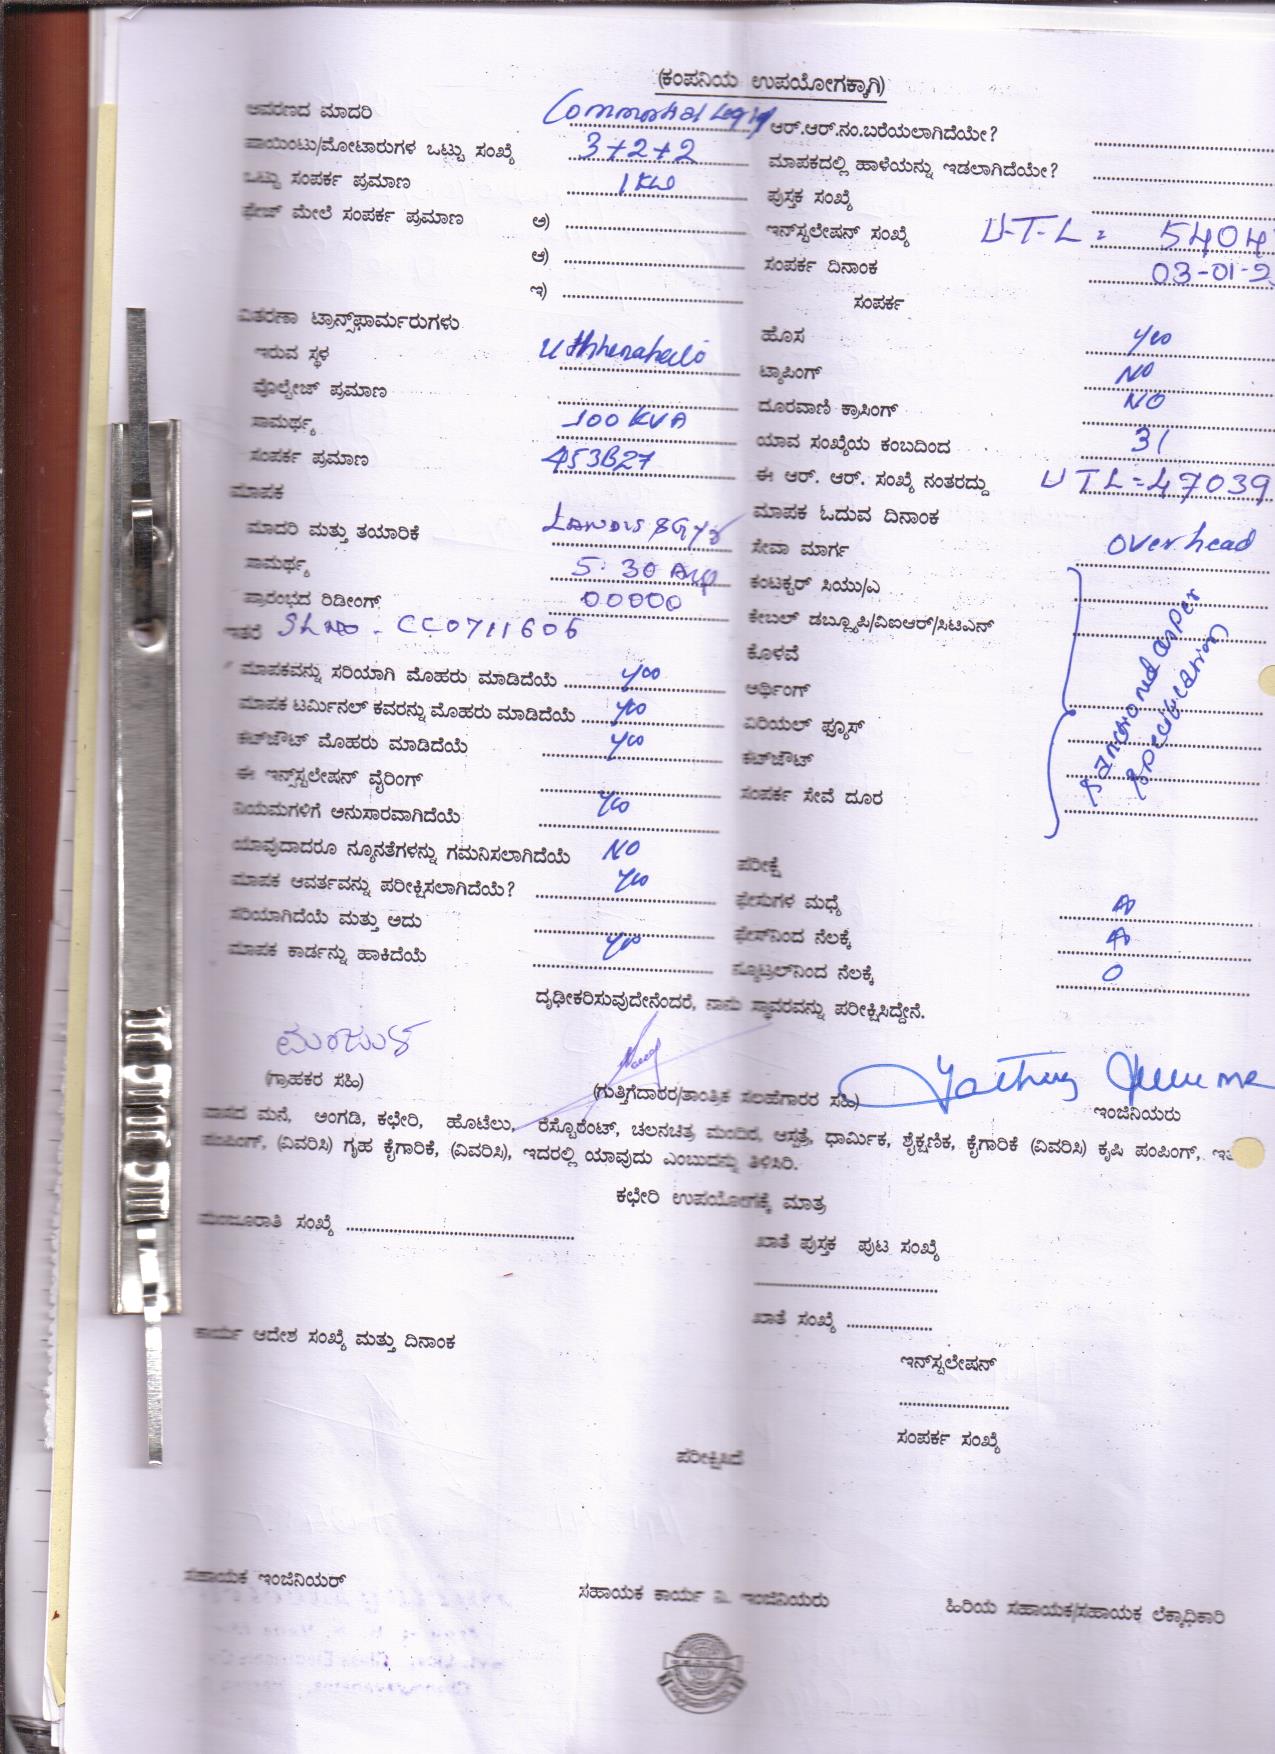 (ಕಂಪನಿಯ ಉಪಯೋಗಕ್ಕಾಗಿ)
ಆವರಣದ ಮಾದರಿ
ಪಾಯಿಂಟು/ಮೋಟಾರುಗಳ ಒಟ್ಟು ಸಂಖ್ಯೆ 3+2+2
ಒಟ್ಟು ಸಂಪರ್ಕ ಪ್ರಮಾಣ 1 KW
ಫೇಜ್ ಮೇಲೆ ಸಂಪರ್ಕ ಪ್ರಮಾಣ ಅ)
ಆ)
ಇ)
ವಿತರಣಾ ಟ್ರಾನ್ಸ್‌ಫಾರ್ಮರುಗಳು
ಇರುವ ಸ್ಥಳ
ವೊಲ್ಟೇಜ್ ಪ್ರಮಾಣ
ಸಾಮರ್ಥ್ಯ 100 KVA
ಸಂಪರ್ಕ ಪ್ರಮಾಣ 453B27
ಮಾಪಕ
ಮಾದರಿ ಮತ್ತು ತಯಾರಿಕೆ LANDIS &GYR
ಸಾಮರ್ಥ್ಯ 5-30 Amp
ಪ್ರಾರಂಭದ ರಿಡೀಂಗ್ 00000
ಇತರೆ SL NO - CC0711606
ಮಾಪಕವನ್ನು ಸರಿಯಾಗಿ ಮೊಹರು ಮಾಡಿದೆಯೆ yes
ಮಾಪಕ ಟರ್ಮಿನಲ್ ಕವರನ್ನು ಮೊಹರು ಮಾಡಿದೆಯೆ yes
ಕಟ್‌ಜೌಟ್ ಮೊಹರು ಮಾಡಿದೆಯೆ yes
ಈ ಇನ್ಸ್‌ಸ್ಟಲೇಷನ್ ವೈರಿಂಗ್
ನಿಯಮಗಳಿಗೆ ಅನುಸಾರವಾಗಿದೆಯೆ yes
ಯಾವುದಾದರೂ ನ್ಯೂನತೆಗಳನ್ನು ಗಮನಿಸಲಾಗಿದೆಯೆ NO
ಮಾಪಕ ಆವರ್ತವನ್ನು ಪರೀಕ್ಷಿಸಲಾಗಿದೆಯೆ? yes
ಸರಿಯಾಗಿದೆಯೆ ಮತ್ತು ಅದು
ಮಾಪಕ ಕಾರ್ಡನ್ನು ಹಾಕಿದೆಯೆ yes
ಆರ್.ಆರ್.ನಂ.ಬರೆಯಲಾಗಿದೆಯೇ?
ಮಾಪಕದಲ್ಲಿ ಹಾಳೆಯನ್ನು ಇಡಲಾಗಿದೆಯೇ?
ಪುಸ್ತಕ ಸಂಖ್ಯೆ
ಇನ್‌ಸ್ಟಲೇಷನ್ ಸಂಖ್ಯೆ U-T-L = 5404
ಸಂಪರ್ಕ ದಿನಾಂಕ 03-01-2
ಸಂಪರ್ಕ
ಹೊಸ yes
ಟ್ಯಾಪಿಂಗ್ NO
ದೂರವಾಣಿ ಕ್ರಾಸಿಂಗ್ NO
ಯಾವ ಸಂಖ್ಯೆಯ ಕಂಬದಿಂದ 31
ಈ ಆರ್. ಆರ್. ಸಂಖ್ಯೆ ನಂತರದ್ದು UTL=47039
ಮಾಪಕ ಓದುವ ದಿನಾಂಕ
ಸೇವಾ ಮಾರ್ಗ overhead
ಕಂಟಕ್ಟರ್ ಸಿಯು/ಎ
ಕೇಬಲ್ ಡಬ್ಲ್ಯೂಪಿ/ವಿಐಆರ್/ಸಿಟಿಎನ್
ಕೊಳವೆ
ಅರ್ಥಿಂಗ್
ಏರಿಯಲ್ ಫ್ಯೂಸ್
ಕಟ್‌ಜೌಟ್
ಸಂಪರ್ಕ ಸೇವೆ ದೂರ
sanctioned as per
specification
ಪರೀಕ್ಷೆ
ಫೇಸುಗಳ ಮಧ್ಯೆ
ಫೇಸ್‌ನಿಂದ ನೆಲಕ್ಕೆ
ನ್ಯೂಟ್ರಲ್‌ನಿಂದ ನೆಲಕ್ಕೆ 0
ದೃಢೀಕರಿಸುವುದೇನೆಂದರೆ, ನಾನು ಸ್ಥಾವರವನ್ನು ಪರೀಕ್ಷಿಸಿದ್ದೇನೆ.
ಮಂಜುಳ
(ಗ್ರಾಹಕರ ಸಹಿ) (ಗುತ್ತಿಗೆದಾರರ/ತಾಂತ್ರಿಕ ಸಲಹೆಗಾರರ ಸಹಿ) ಇಂಜಿನಿಯರು
ವಾಸದ ಮನೆ, ಅಂಗಡಿ, ಕಛೇರಿ, ಹೊಟೆಲು, ರೆಸ್ಟೊರೆಂಟ್, ಚಲನಚಿತ್ರ ಮಂದಿರ, ಆಸ್ಪತ್ರೆ, ಧಾರ್ಮಿಕ, ಶೈಕ್ಷಣಿಕ, ಕೈಗಾರಿಕೆ (ವಿವರಿಸಿ) ಕೃಷಿ ಪಂಪಿಂಗ್,
ಪಂಪಿಂಗ್, (ವಿವರಿಸಿ) ಗೃಹ ಕೈಗಾರಿಕೆ, (ವಿವರಿಸಿ), ಇದರಲ್ಲಿ ಯಾವುದು ಎಂಬುದನ್ನು ತಿಳಿಸಿರಿ.
ಕಛೇರಿ ಉಪಯೋಗಕ್ಕೆ ಮಾತ್ರ
ಮಂಜೂರಾತಿ ಸಂಖ್ಯೆ
ಖಾತೆ ಪುಸ್ತಕ ಪುಟ ಸಂಖ್ಯೆ
ಖಾತೆ ಸಂಖ್ಯೆ
ಕಾರ್ಯ ಆದೇಶ ಸಂಖ್ಯೆ ಮತ್ತು ದಿನಾಂಕ
ಇನ್‌ಸ್ಟಲೇಷನ್
ಸಂಪರ್ಕ ಸಂಖ್ಯೆ
ಪರೀಕ್ಷಿಸಿದೆ
ಸಹಾಯಕ ಇಂಜಿನಿಯರ್ ಸಹಾಯಕ ಕಾರ್ಯ ನಿ. ಇಂಜಿನಿಯರು ಹಿರಿಯ ಸಹಾಯಕ/ಸಹಾಯಕ ಲೆಕ್ಕಾಧಿಕಾರಿ